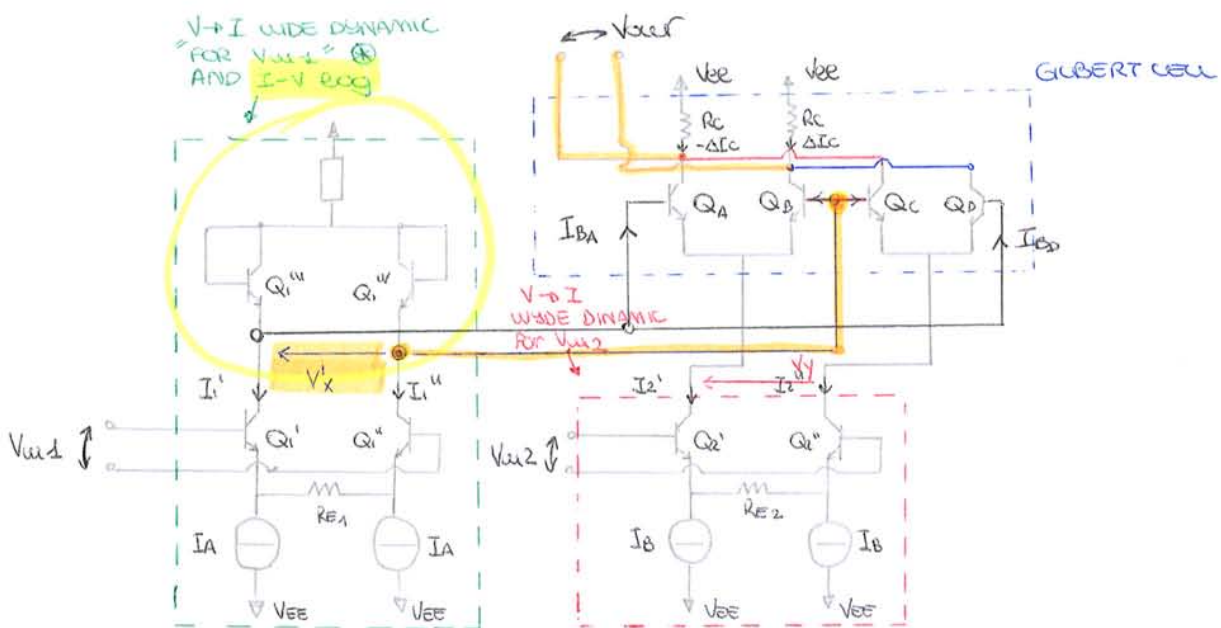 V→I WIDE DYNAMIC
"FOR Vin1" ⊛
AND I-V log
Vout
VEE
VEE
GILBERT CELL
RC
RC
-ΔIC
ΔIC
QA
QB
QC
QD
IBA
IBD
Q1'''
Q1''''
V→I
WYDE DINAMIC
FOR Vin2
V'x
Vy
I1'
I1''
I2'
I2''
Vin1
Q1'
Q1''
Vin2
Q2'
Q2''
RE1
RE2
IA
IA
IB
IB
VEE
VEE
VEE
VEE